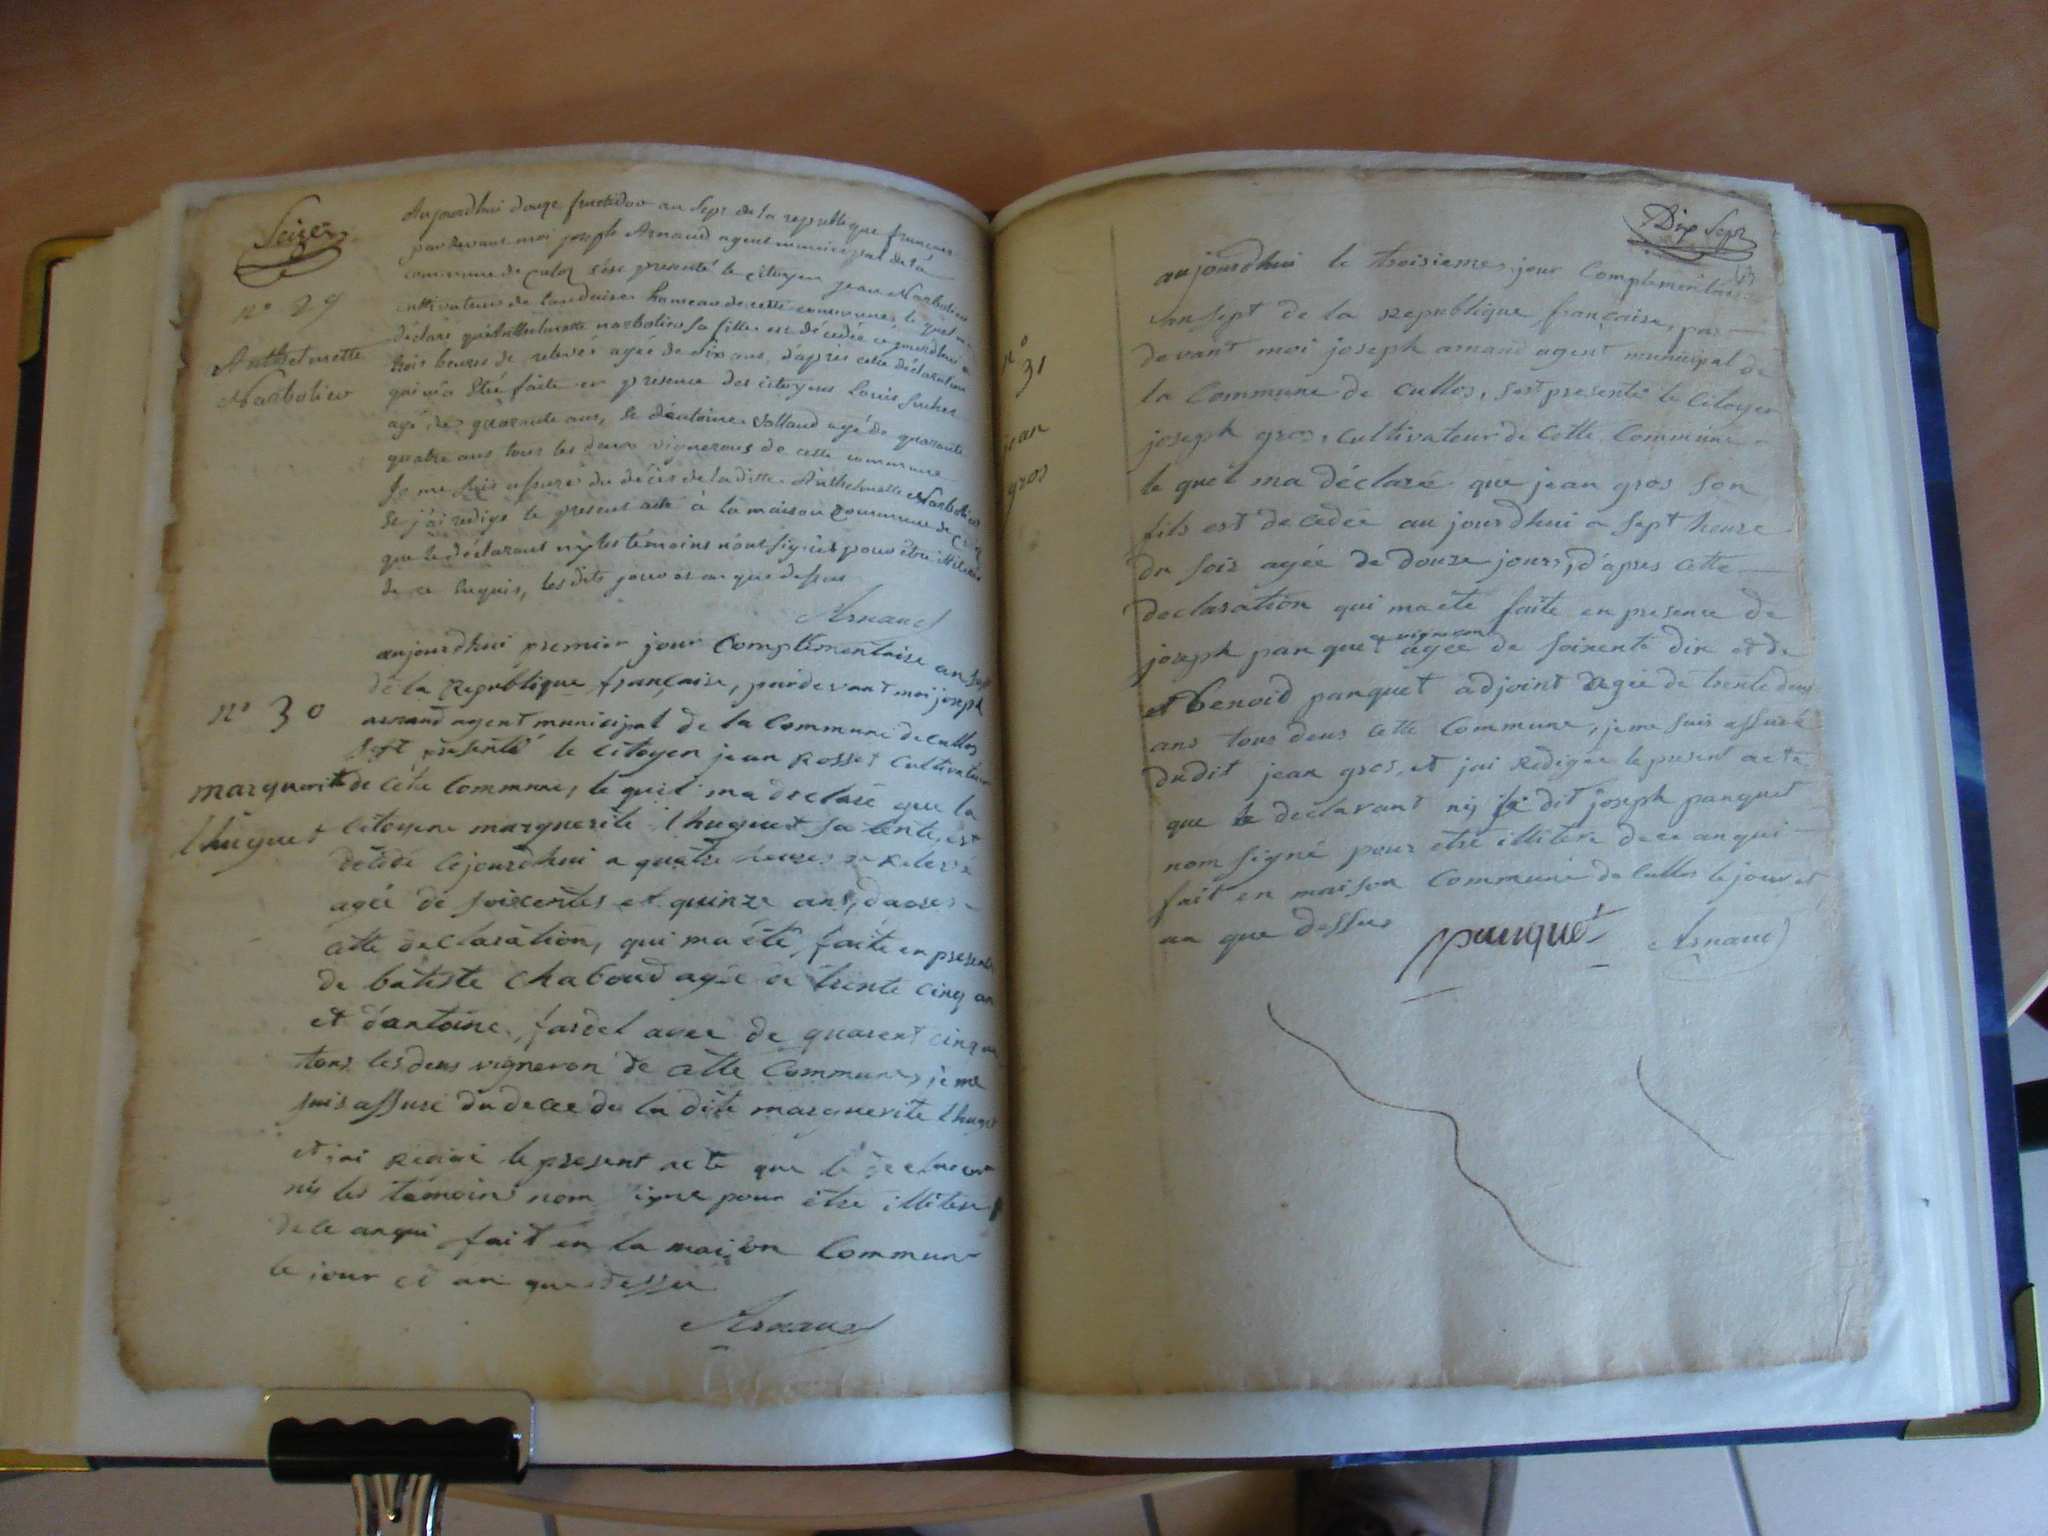 Seize
n° 29
Anthelmette
Narbolier
Aujourdhui douze fructidor an sept de la republique francaise
pardevant moi joseph Arnaud agent municipal de la
commune de culoz s'est presenté le citoyen jean Narbolier
cultivateur de hameau de cette commune, le quel
déclare qu'Anthelmette narbolier sa fille est décédée ce jourdhui a
trois heures de relevée agée de dix ans, d'après cette déclaration
qui m'a été faite en présence des citoyens Louis
agé de quarante ans, & d'antoine Vallaud agé de quarante
quatre ans tous les deux vignerons de cette commune
Je me suis assuré du décès de la ditte Anthelmette Narbolier
& j'ai redigé le présent acte à la maison commune de
que le déclarant ny les témoins n'ont signés pour être
de ce enquis, les dits jour et an que dessus
Arnaud
n° 30
marguerite
thuguet
aujourdhui premier jour Complementaire an sept
de la Republique française, pardevant moi joseph
arnaud agent municipal de la Commune de culloz
sest présenté le citoyen jean Rosset cultivateur
de cete Commune, le quel ma déclaré que la
citoyene marguerite thuguet sa tente, est
décédé cejourdhui a quatre heures de relevé
agée de soixentes et quinze ans, dapres
cette declaration, qui ma été faite en presence
de batiste chaboud agée de trente cinq an
et d'antoine fardel agée de quarent cinq an
tous les deus vigneron de cette Commune, je me
suis assuré du decee de la dite marguerite thuget
et jai redigé le present acte que le declarant
nis les témoins nom signé pour être illitere
de ce anqui fait en la maison Commune
le jour et an que dessu
Arnaud
Dix Sept
n°
31
jean
gros
aujourdhui le troisiemes jour Complementaire
an sept de la Republique française, par
devant moi joseph arnaud agent municipal de
la Commune de cullos, sest presenté le Citoyen
joseph gros, cultivateur de cette Commune
le quel ma déclaré que jean gros son
fils est decedée aujourdhui a sept heure
du soir agée de douze jours, d'apres cette
declaration qui ma été faite en presence de
joseph panquet vigneron agée de soixente dix et de
et benoid panquet adjoint agée de trente deus
ans tous deus cette Commune, je me suis assuré
dudit jean gros, et jai redigée le present acte
que le declarant nij le dit joseph panquet
nom signé pour etre illitere de ce anqui
fait en maison Commune de cullos le jour et
an que dessus
panquet Arnaud